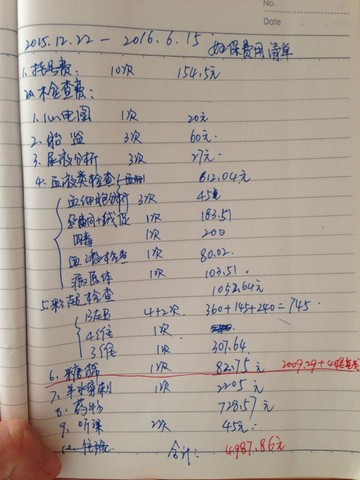 No.
Date
2015.12.22 — 2016.6.15 妇保费用清单
1. 挂号费: 10次 154.5元
2. 检查费:
1. 心电图 1次 20元
2. 胎监 3次 60元
3. 尿液分析 3次 27元
4. 血液类检查 612.04元
血细胞分析 3次 45
1次 183.51
1次 200
血凝检查 1次 80.02
病原体 1次 103.51
5. 彩超检查 1052.64元
B超 4+2次 360+145+240=745
4维 1次
3维 1次 307.64
6. 糖筛 1次 82.75元 2009.29+
7. 羊水穿刺 1次 2205元
8. 药物 728.57元
9. 听课 2次 45元
合计: 4987.86元